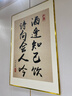 酒逢知己饮
诗向会人吟